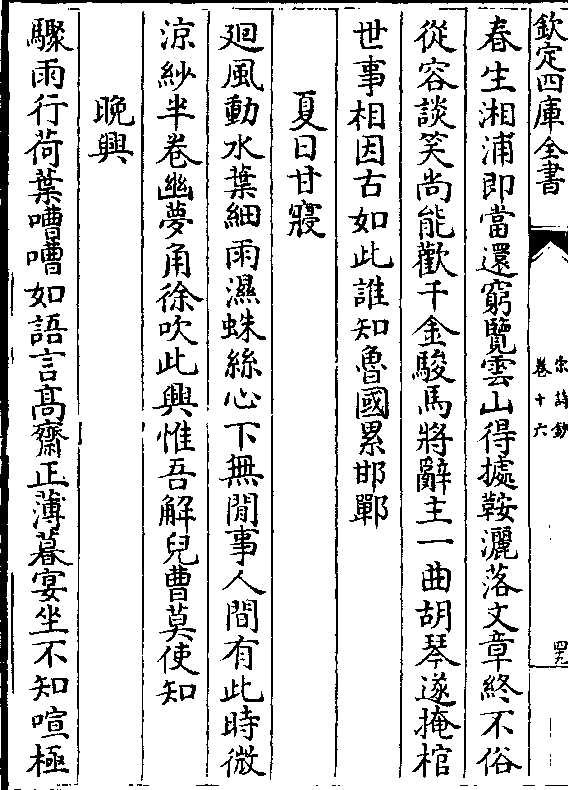 欽定四庫全書
宋詩鈔
卷十六
四九
春生湘浦即當還窮覽雲山得據鞍灑落文章終不俗
從容談笑尚能歡千金駿馬將辭主一曲胡琴遂掩棺
世事相因古如此誰知魯國累邯鄲
夏日甘寢
廻風動水葉細雨濕蛛絲心下無閒事人間有此時微
涼紗半卷幽夢角徐吹此興惟吾解兒曹莫使知
晚興
驟雨行荷葉嘈嘈如語言髙齋正薄暮宴坐不知喧極